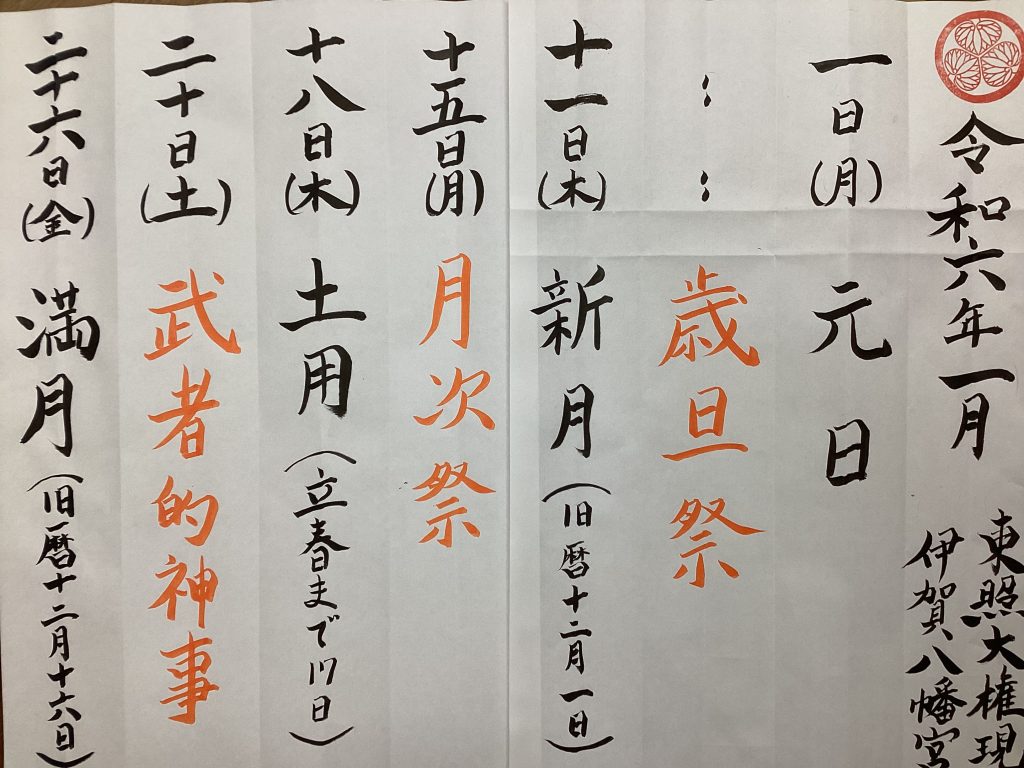 令和六年一月
東照大権現
伊賀八幡宮
一日(月) 元日
：：歳旦祭
十一日(木) 新月(旧暦十二月一日)
十五日(月) 月次祭
十八日(木) 土用(立春まで17日)
二十日(土) 武者的神事
二十六日(金) 満月(旧暦十二月十六日)